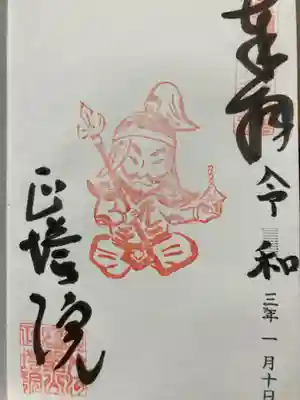 奉拝
令和三年一月十日
正塔院